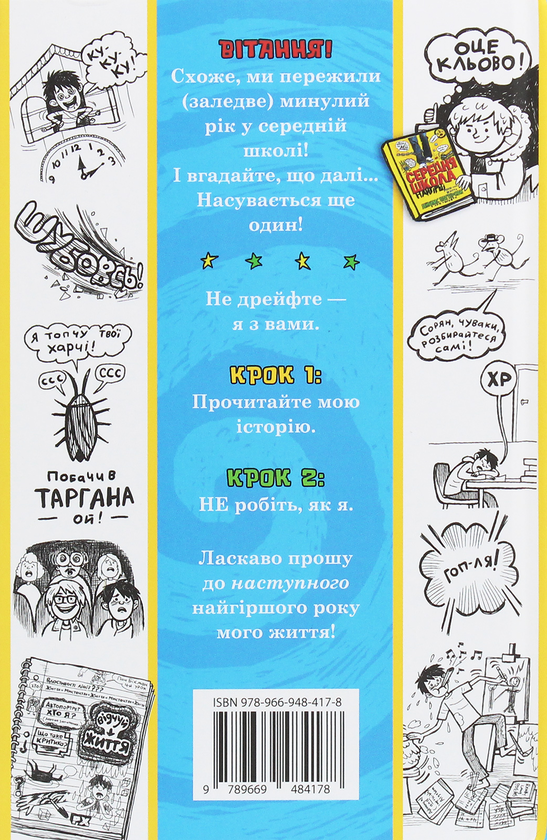 ВІТАННЯ!
Схоже, ми пережили
(заледве) минулий
рік у середній
школі!
І вгадайте, що далі...
Насувається ще
один!
Не дрейфте —
я з вами.
КРОК 1:
Прочитайте мою
історію.
КРОК 2:
НЕ робіть, як я.
Ласкаво прошу
до наступного
найгіршого року
мого життя!
ISBN 978-966-948-417-8
9 789669 484178
КУ-КУ!
12
3
6
9
ШУБОВСЬ!
Я ТОПЧУ ТВОЇ
ХАРЧІ!
ССС
ССС
Побачив
ТАРГАНА
— ОЙ! —
Автопортрет
ХТО Я?
Що таке
критика?
Відчуй
життя
ОЦЕ
КЛЬОВО!
СЕРЕДНЯ
ШКОЛА
Сорян, чуваки,
розбирайтеся
самі!
ХР
ГОП-ЛЯ!